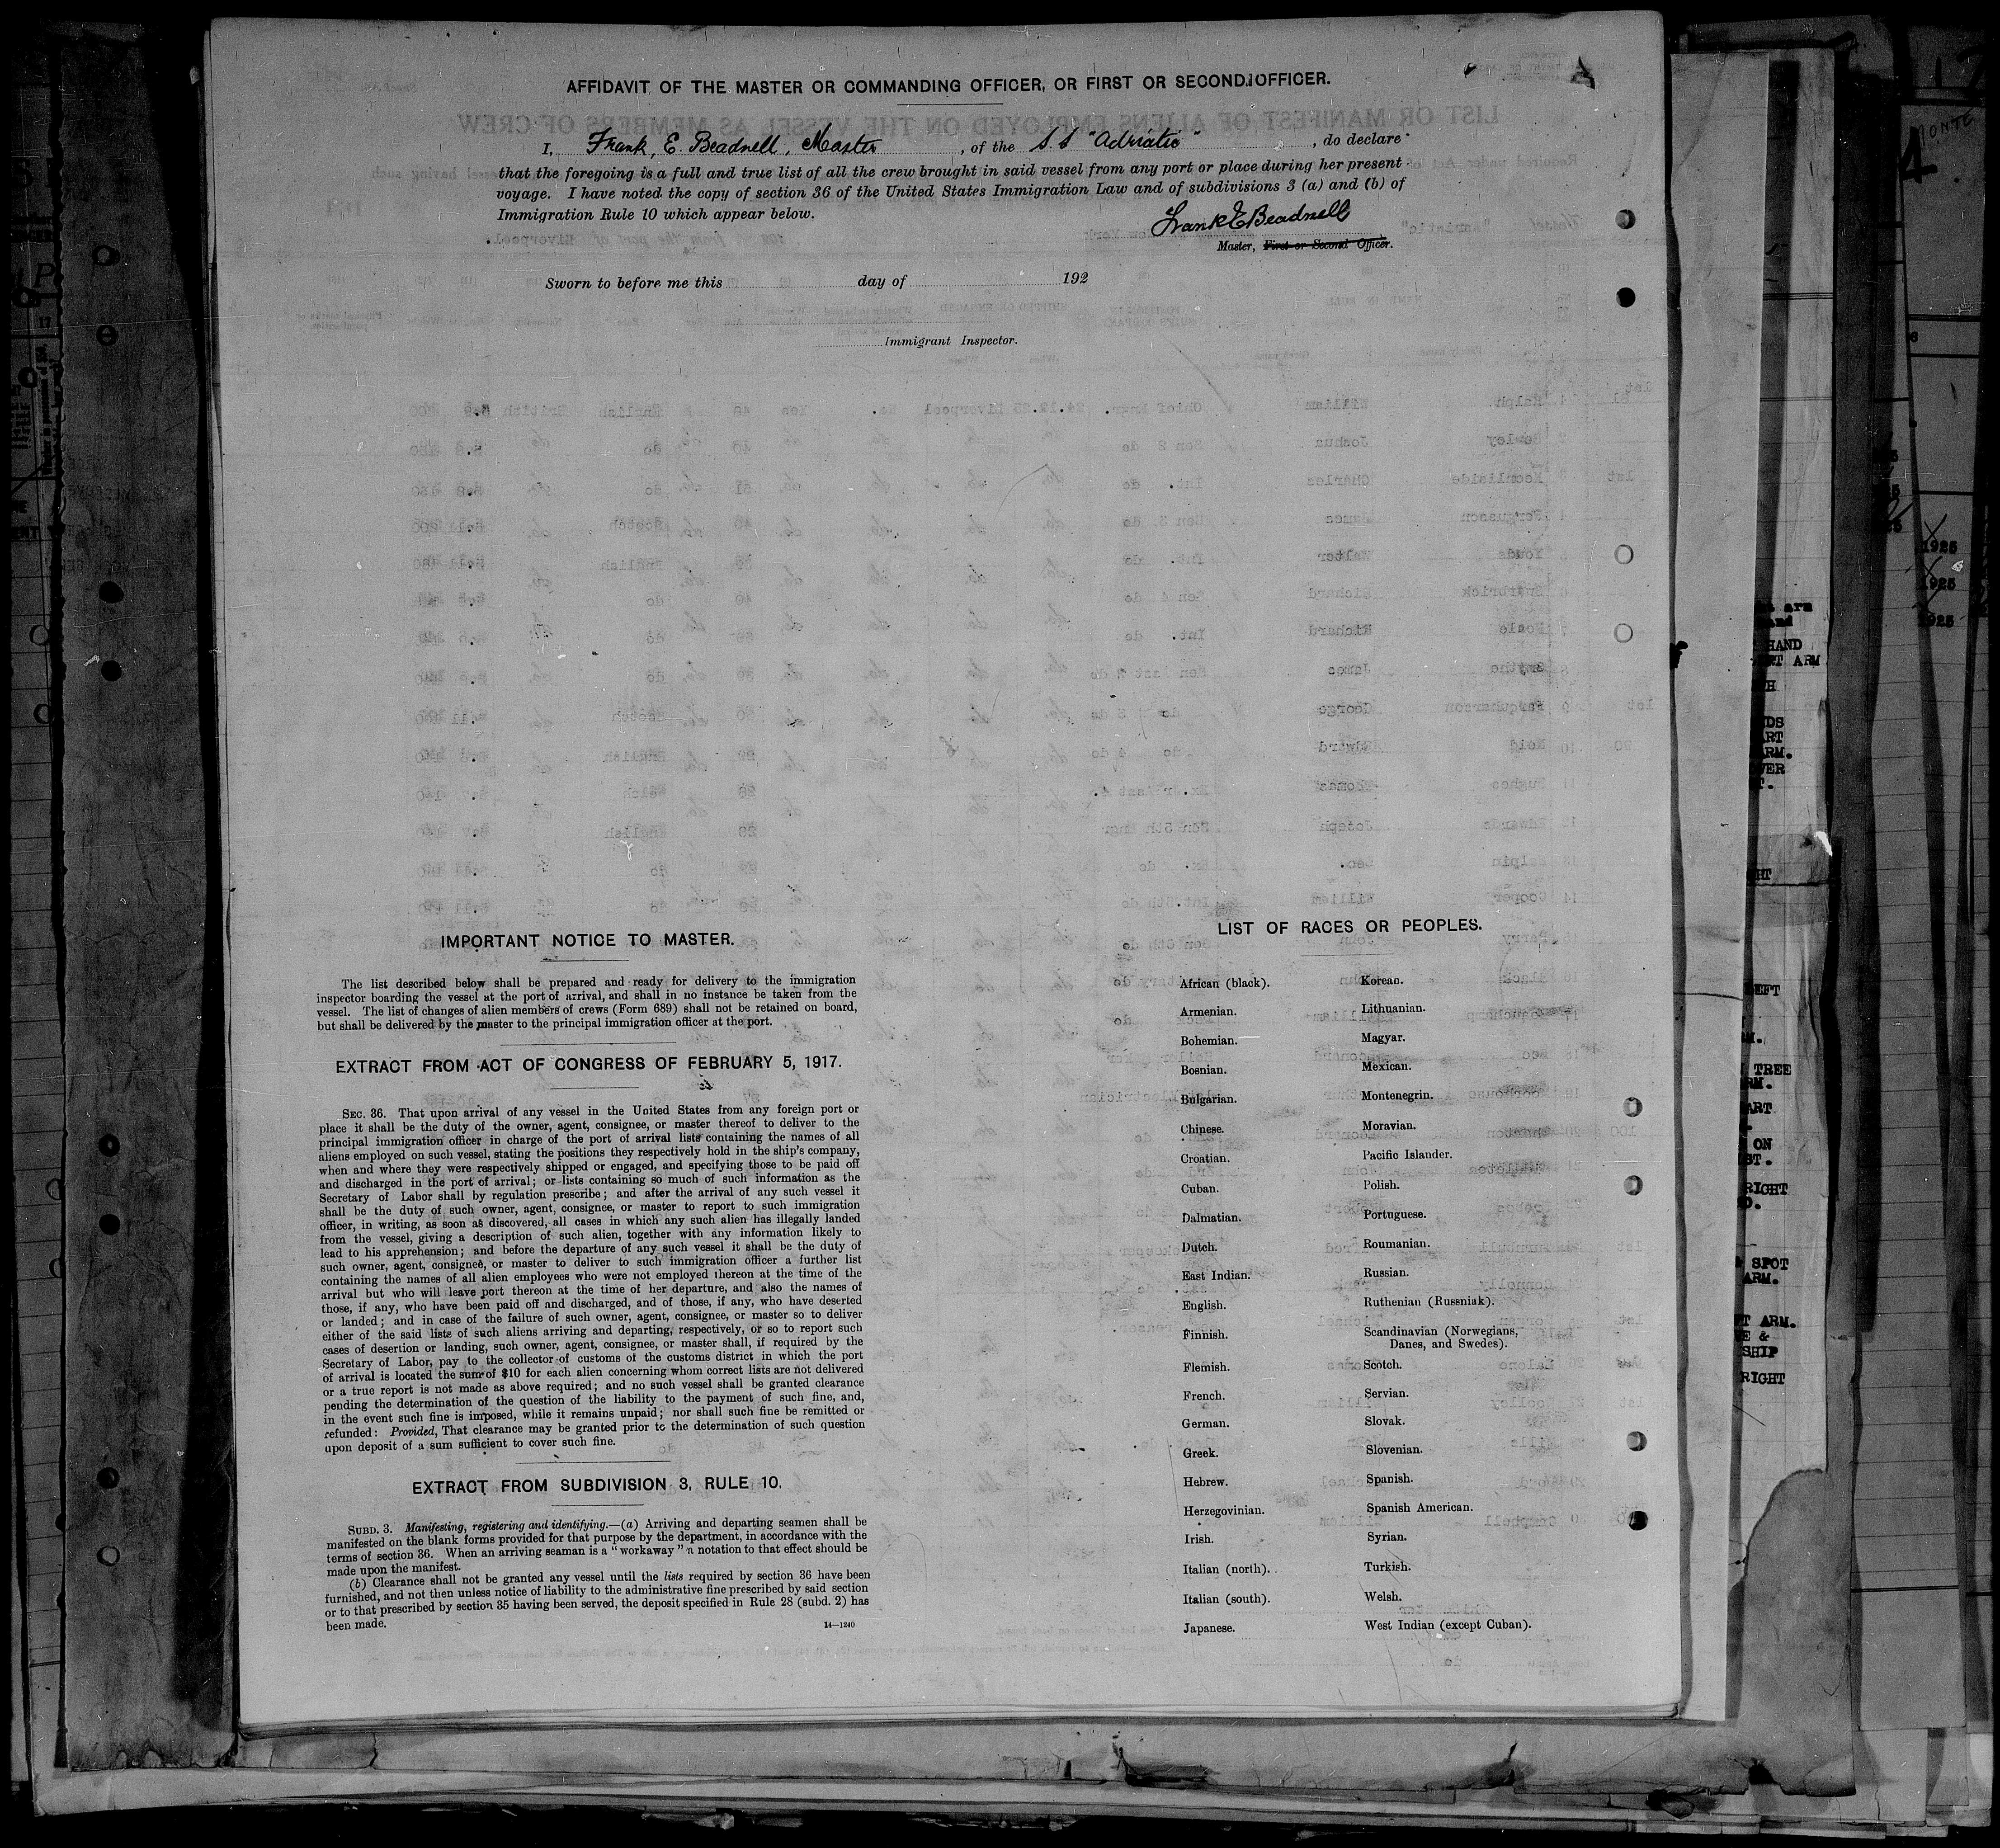 AFFIDAVIT OF THE MASTER OR COMMANDING OFFICER, OR FIRST OR SECOND OFFICER.
I, Frank, E. Beadnell, Master, of the S.S "Adriatic", do declare
that the foregoing is a full and true list of all the crew brought in said vessel from any port or place during her present
voyage. I have noted the copy of section 36 of the United States Immigration Law and of subdivisions 3 (a) and (b) of
Immigration Rule 10 which appear below.
Frank E Beadnell
Master, First or Second Officer.
Sworn to before me this day of 192
Immigrant Inspector.
IMPORTANT NOTICE TO MASTER.
The list described below shall be prepared and ready for delivery to the immigration
inspector boarding the vessel at the port of arrival, and shall in no instance be taken from the
vessel. The list of changes of alien members of crews (Form 689) shall not be retained on board,
but shall be delivered by the master to the principal immigration officer at the port.
EXTRACT FROM ACT OF CONGRESS OF FEBRUARY 5, 1917.
SEC. 36. That upon arrival of any vessel in the United States from any foreign port or
place it shall be the duty of the owner, agent, consignee, or master thereof to deliver to the
principal immigration officer in charge of the port of arrival lists containing the names of all
aliens employed on such vessel, stating the positions they respectively hold in the ship's company,
when and where they were respectively shipped or engaged, and specifying those to be paid off
and discharged in the port of arrival; or lists containing so much of such information as the
Secretary of Labor shall by regulation prescribe; and after the arrival of any such vessel it
shall be the duty of such owner, agent, consignee, or master to report to such immigration
officer, in writing, as soon as discovered, all cases in which any such alien has illegally landed
from the vessel, giving a description of such alien, together with any information likely to
lead to his apprehension; and before the departure of any such vessel it shall be the duty of
such owner, agent, consignee, or master to deliver to such immigration officer a further list
containing the names of all alien employees who were not employed thereon at the time of the
arrival but who will leave port thereon at the time of her departure, and also the names of
those, if any, who have been paid off and discharged, and of those, if any, who have deserted
or landed; and in case of the failure of such owner, agent, consignee, or master so to deliver
either of the said lists of such aliens arriving and departing, respectively, or so to report such
cases of desertion or landing, such owner, agent, consignee, or master shall, if required by the
Secretary of Labor, pay to the collector of customs of the customs district in which the port
of arrival is located the sum of $10 for each alien concerning whom correct lists are not delivered
or a true report is not made as above required; and no such vessel shall be granted clearance
pending the determination of the question of the liability to the payment of such fine, and,
in the event such fine is imposed, while it remains unpaid; nor shall such fine be remitted or
refunded: Provided, That clearance may be granted prior to the determination of such question
upon deposit of a sum sufficient to cover such fine.
EXTRACT FROM SUBDIVISION 3, RULE 10.
SUBD. 3. Manifesting, registering and identifying.—(a) Arriving and departing seamen shall be
manifested on the blank forms provided for that purpose by the department, in accordance with the
terms of section 36. When an arriving seaman is a "workaway" a notation to that effect should be
made upon the manifest.
(b) Clearance shall not be granted any vessel until the lists required by section 36 have been
furnished, and not then unless notice of liability to the administrative fine prescribed by said section
or to that prescribed by section 35 having been served, the deposit specified in Rule 28 (subd. 2) has
been made.
14—1240
LIST OF RACES OR PEOPLES.
African (black).
Armenian.
Bohemian.
Bosnian.
Bulgarian.
Chinese.
Croatian.
Cuban.
Dalmatian.
Dutch.
East Indian.
English.
Finnish.
Flemish.
French.
German.
Greek.
Hebrew.
Herzegovinian.
Irish.
Italian (north).
Italian (south).
Japanese.
Korean.
Lithuanian.
Magyar.
Mexican.
Montenegrin.
Moravian.
Pacific Islander.
Polish.
Portuguese.
Roumanian.
Russian.
Ruthenian (Russniak).
Scandinavian (Norwegians,
Danes, and Swedes).
Scotch.
Servian.
Slovak.
Slovenian.
Spanish.
Spanish American.
Syrian.
Turkish.
Welsh.
West Indian (except Cuban).
HAND
TREE
ON
RIGHT
SPOT
ARM.
SHIP
RIGHT
1925
1925
1925